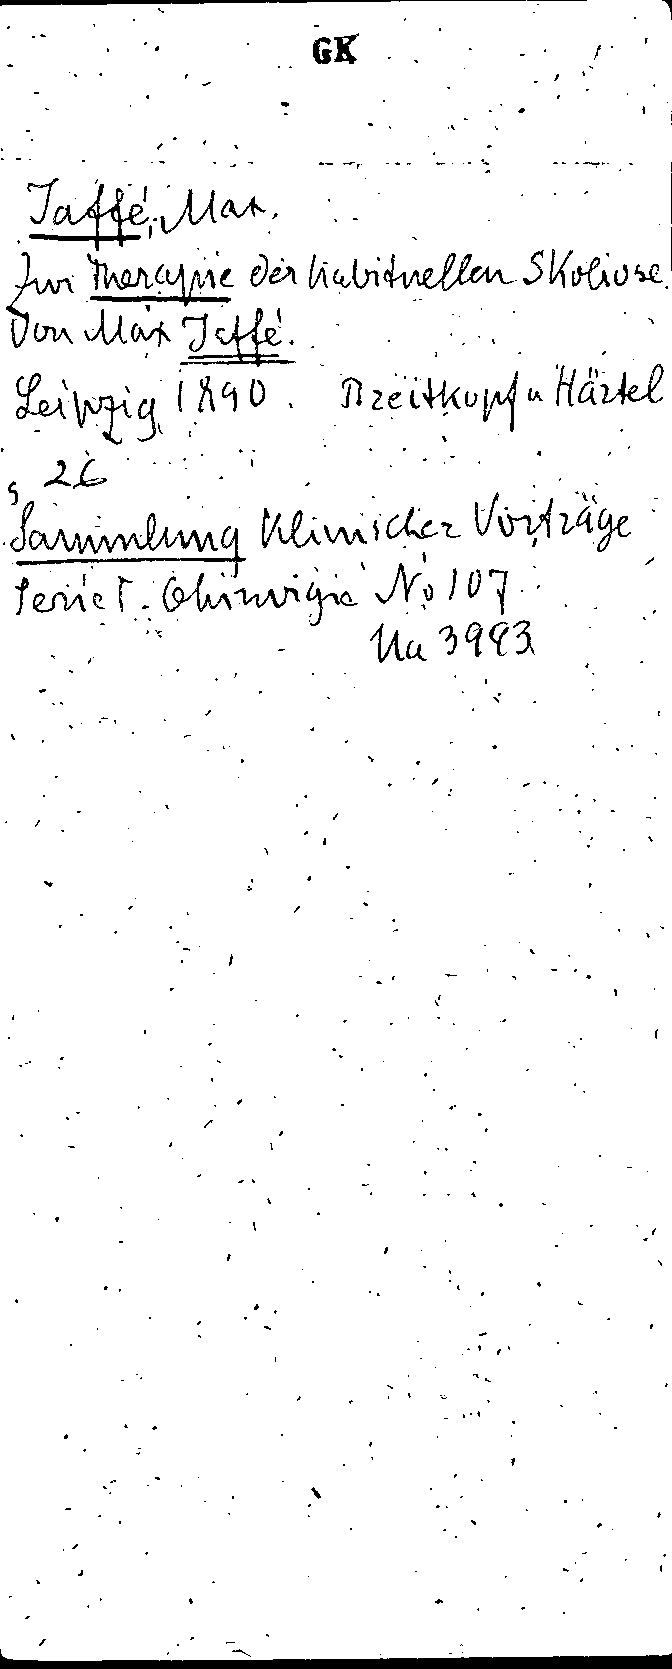 GK
Jaffé, Max.
Zur Therapie der habituellen Skoliose.
Von Max Jaffé.
Leipzig 1890. Breitkopf u Härtel
s 26
Sammlung Klinischer Vorträge
Serie I. Chirurgie No 107
Ua 3993